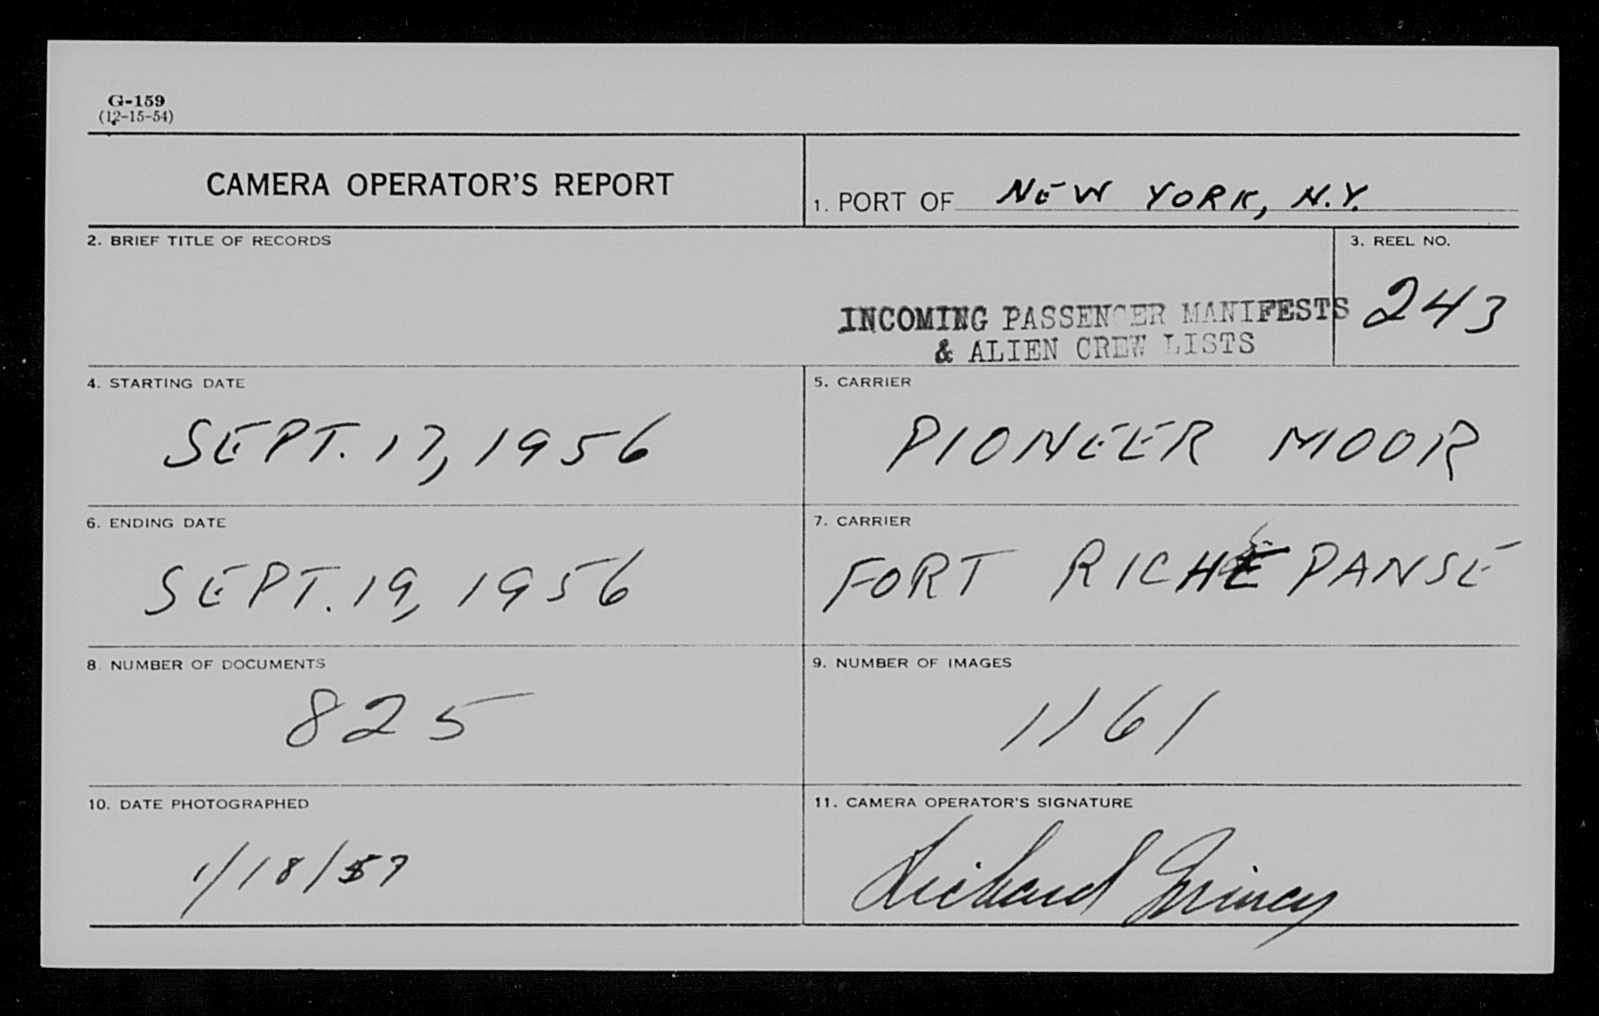 G-159
(12-15-54)
CAMERA OPERATOR'S REPORT
1. PORT OF NEW YORK, N.Y.
2. BRIEF TITLE OF RECORDS
INCOMING PASSENGER MANIFESTS
& ALIEN CREW LISTS
3. REEL NO.
243
4. STARTING DATE
SEPT. 17, 1956
5. CARRIER
PIONEER MOOR
6. ENDING DATE
SEPT. 19, 1956
7. CARRIER
FORT RICHEPANSE
8. NUMBER OF DOCUMENTS
825
9. NUMBER OF IMAGES
1161
10. DATE PHOTOGRAPHED
1/18/57
11. CAMERA OPERATOR'S SIGNATURE
Richard